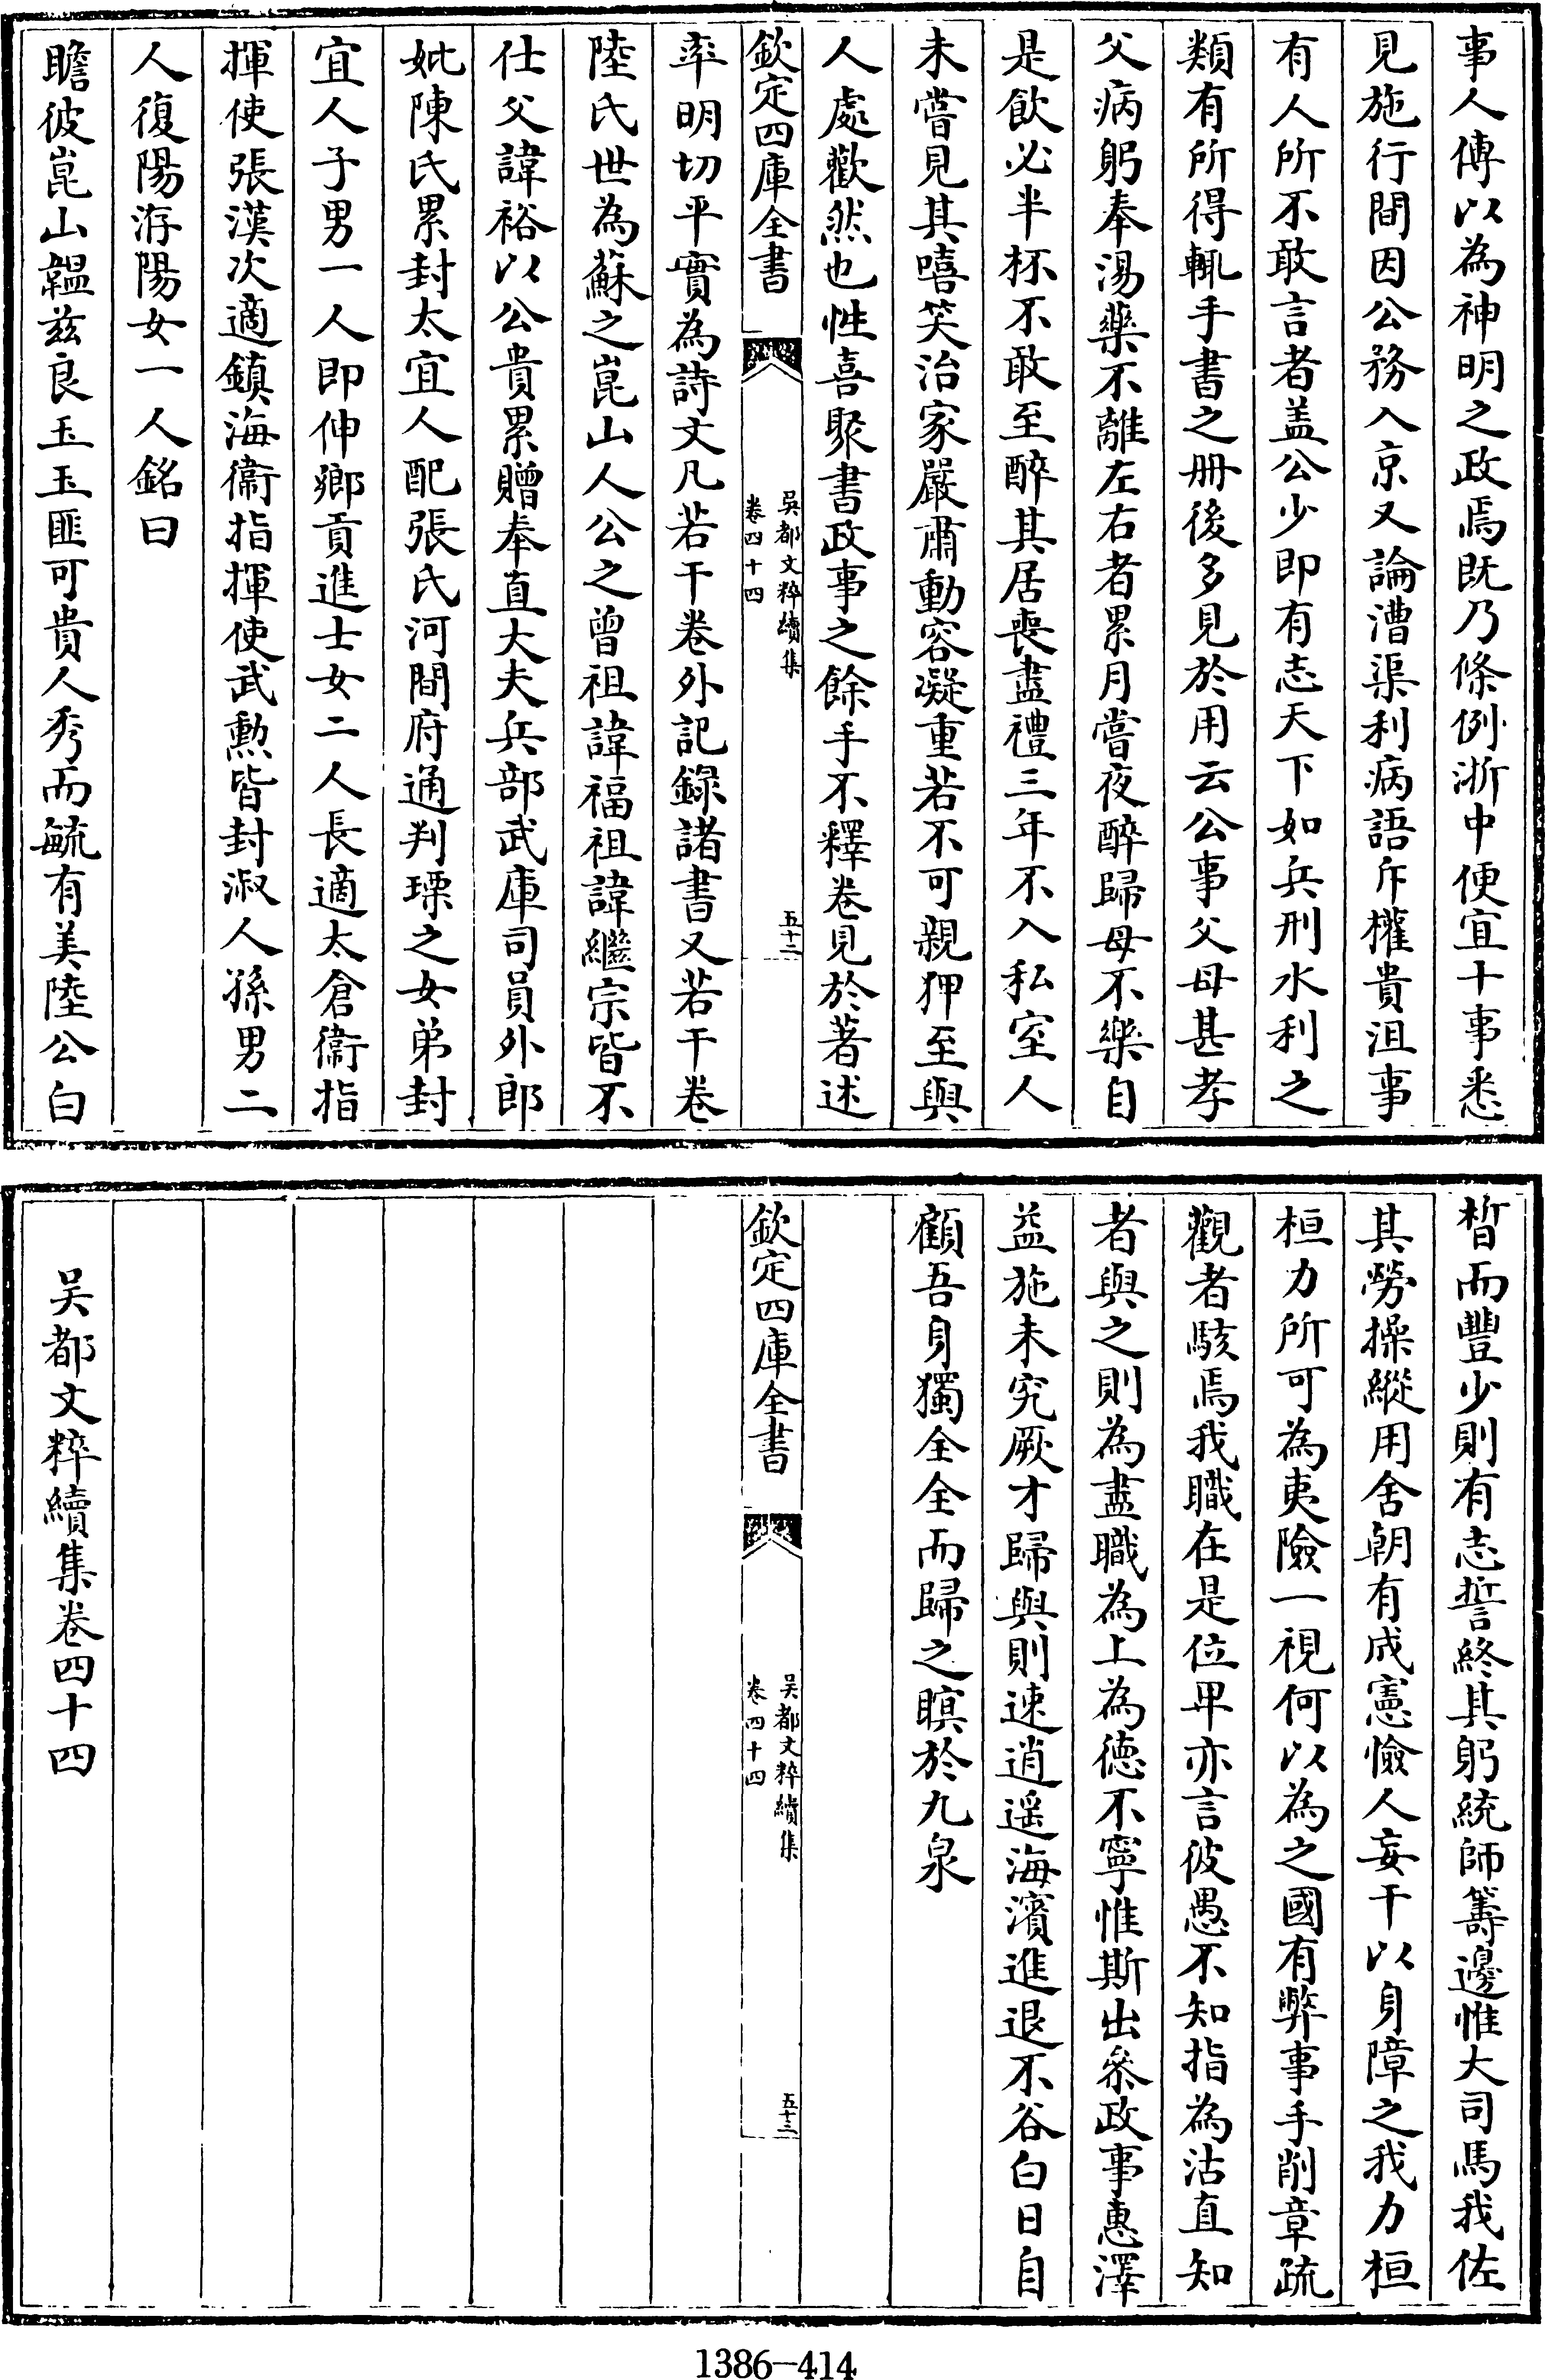 事人傳以為神明之政焉既乃條例浙中便宜十事悉
見施行間因公務入京又論漕渠利病語斥權貴沮事
有人所不敢言者盖公少即有志天下如兵刑水利之
類有所得輒手書之册後多見於用云公事父母甚孝
父病躬奉湯藥不離左右者累月嘗夜醉歸母不樂自
是飲必半杯不敢至醉其居喪盡禮三年不入私室人
未嘗見其嘻笑治家嚴肅動容凝重若不可親狎至與
人處歡然也性喜聚書政事之餘手不釋卷見於著述
欽定四庫全書
吳都文粹續集
卷四十四
五十二
率明切平實為詩文凡若干卷外記錄諸書又若干卷
陸氏世為蘇之崑山人公之曾祖諱福祖諱繼宗皆不
仕父諱裕以公貴累贈奉直大夫兵部武庫司員外郎
妣陳氏累封太宜人配張氏河間府通判瑮之女弟封
宜人子男一人即伸鄉貢進士女二人長適太倉衞指
揮使張漢次適鎮海衞指揮使武勲皆封淑人孫男二
人復陽洊陽女一人銘曰
瞻彼崑山韞兹良玉玉匪可貴人秀而毓有美陸公白
皙而豐少則有志誓終其躬統師籌邊惟大司馬我佐
其勞操縱用舍朝有成憲憸人妄干以身障之我力桓
桓力所可為夷險一視何以為之國有弊事手削章疏
觀者駭焉我職在是位卑亦言彼愚不知指為沽直知
者與之則為盡職為上為德不寧惟斯出叅政事惠澤
益施未究厥才歸與則速逍遥海濱進退不谷白日自
顧吾身獨全全而歸之瞑於九泉
欽定四庫全書
吳都文粹續集
卷四十四
五十三
吳都文粹續集卷四十四
1386—414